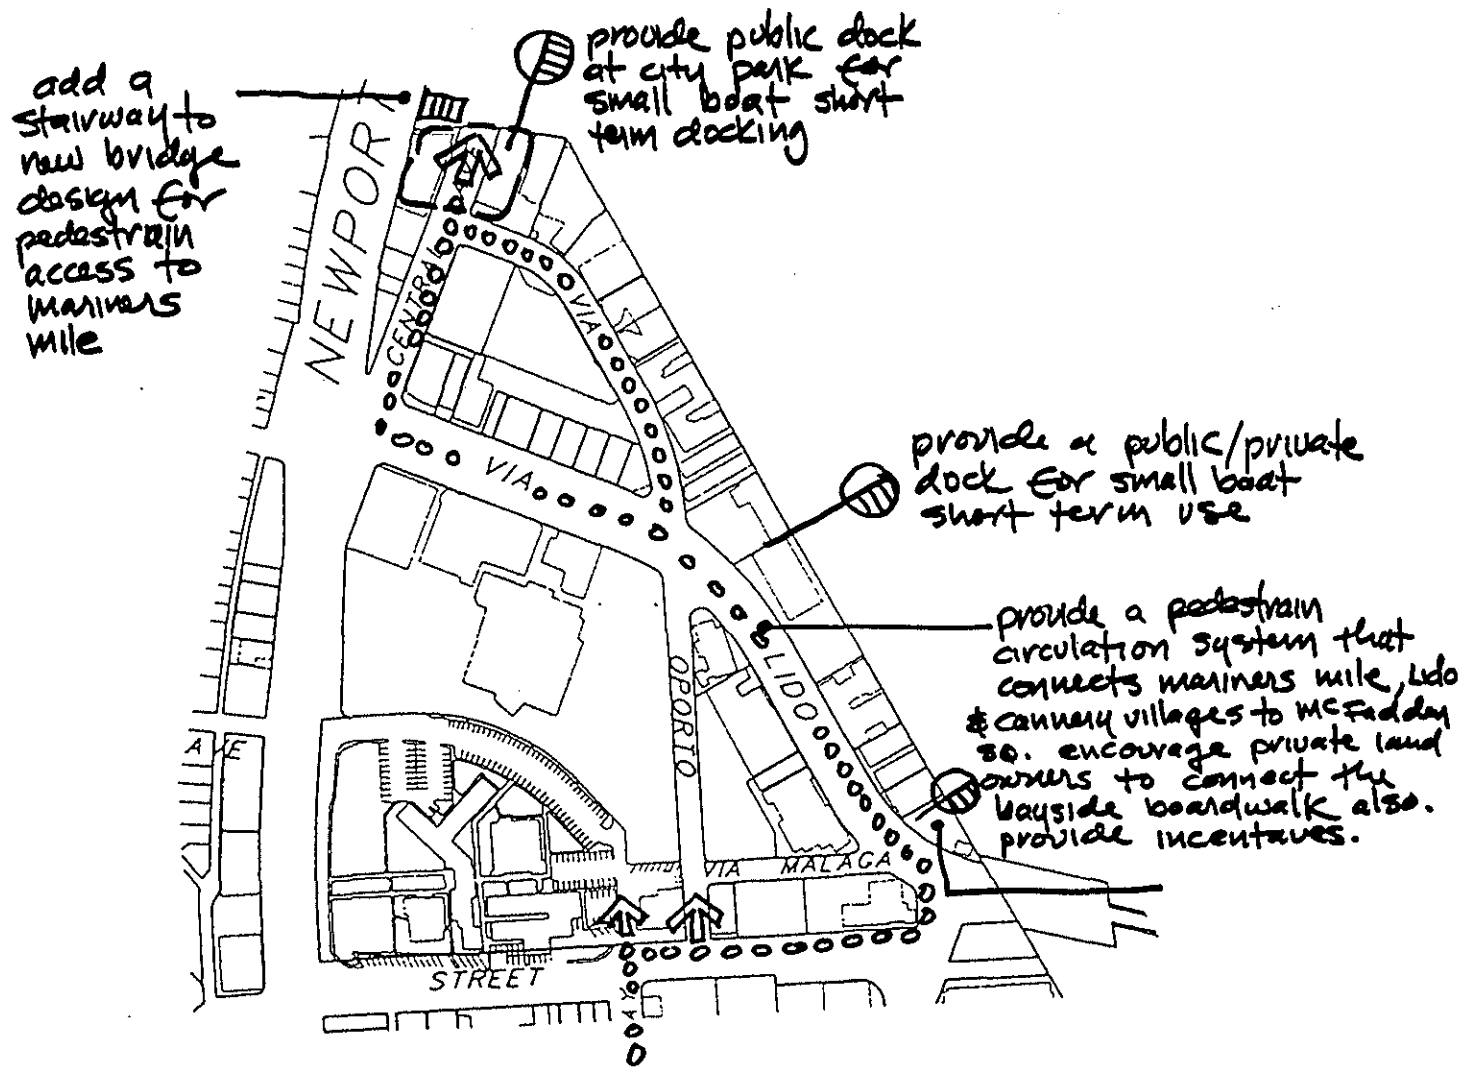 add a
stairway to
new bridge
design for
pedestrain
access to
mariners
mile
provide public dock
at city park for
small boat short
term docking
NEWPOR
CENTRAL
VIA
VIA
LIDO
OPORTO
provide a public/private
dock for small boat
short term use
provide a pedestrain
circulation system that
connects mariners mile, Lido
& cannery villages to McFadden
sq. encourage private land
owners to connect the
bayside boardwalk also.
provide incentaves.
VIA MALAGA
STREET